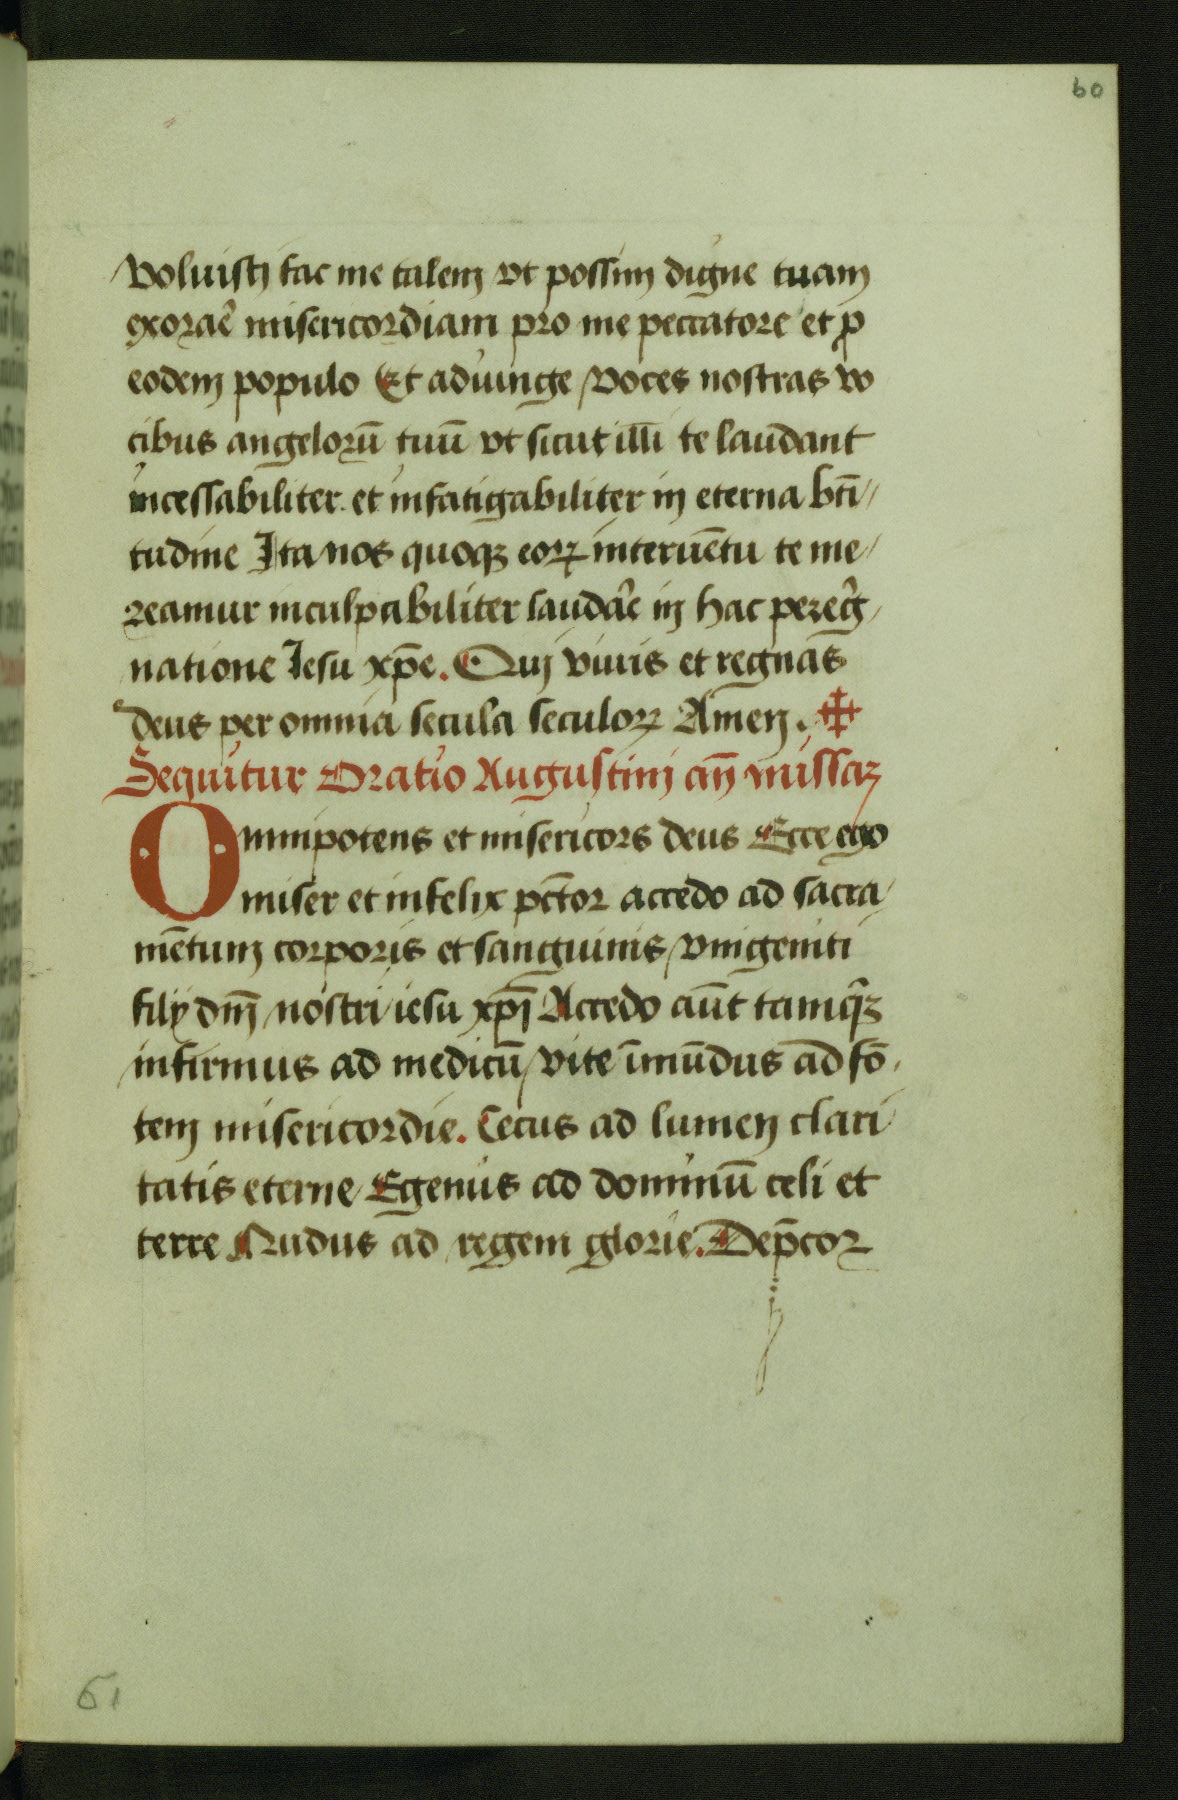 60
voluisti fac me talem vt possim digne tuam
exorar̄e misericordiam pro me peccatore et ꝓ
eodem populo Et adiunge voces nostras vo
cibus angelorū tuū vt sicut illi te laudant
incessabiliter et infatigabiliter in eterna bt̄i//
tudine Ita nos quoqꝫ eoꝝ interuētu te me/
reamur inculpabiliter laudar̄e in hac peregⁱ/
natione Iesu xp̄e. Qui viuis et regnas
deus per omnia secula seculoꝝ Amen. ‡
Sequitur Oratio Augustini an̄ missaꝫ
Omnipotens et misericors deus Ecce ego
miser et infelix pct̄or accedo ad sacra/
mētum corporis et sanguinis vnigeniti
filij dn̄i nostri iesu xp̄i Accedo aūt tamqͣꝫ
infirmus ad medicū vite īmūdus ad fō/
tem misericordie. Cecus ad lumen clari/
tatis eterne Egenus ad dominū celi et
terre Nudus ad regem glorie. Dep̄cor
61